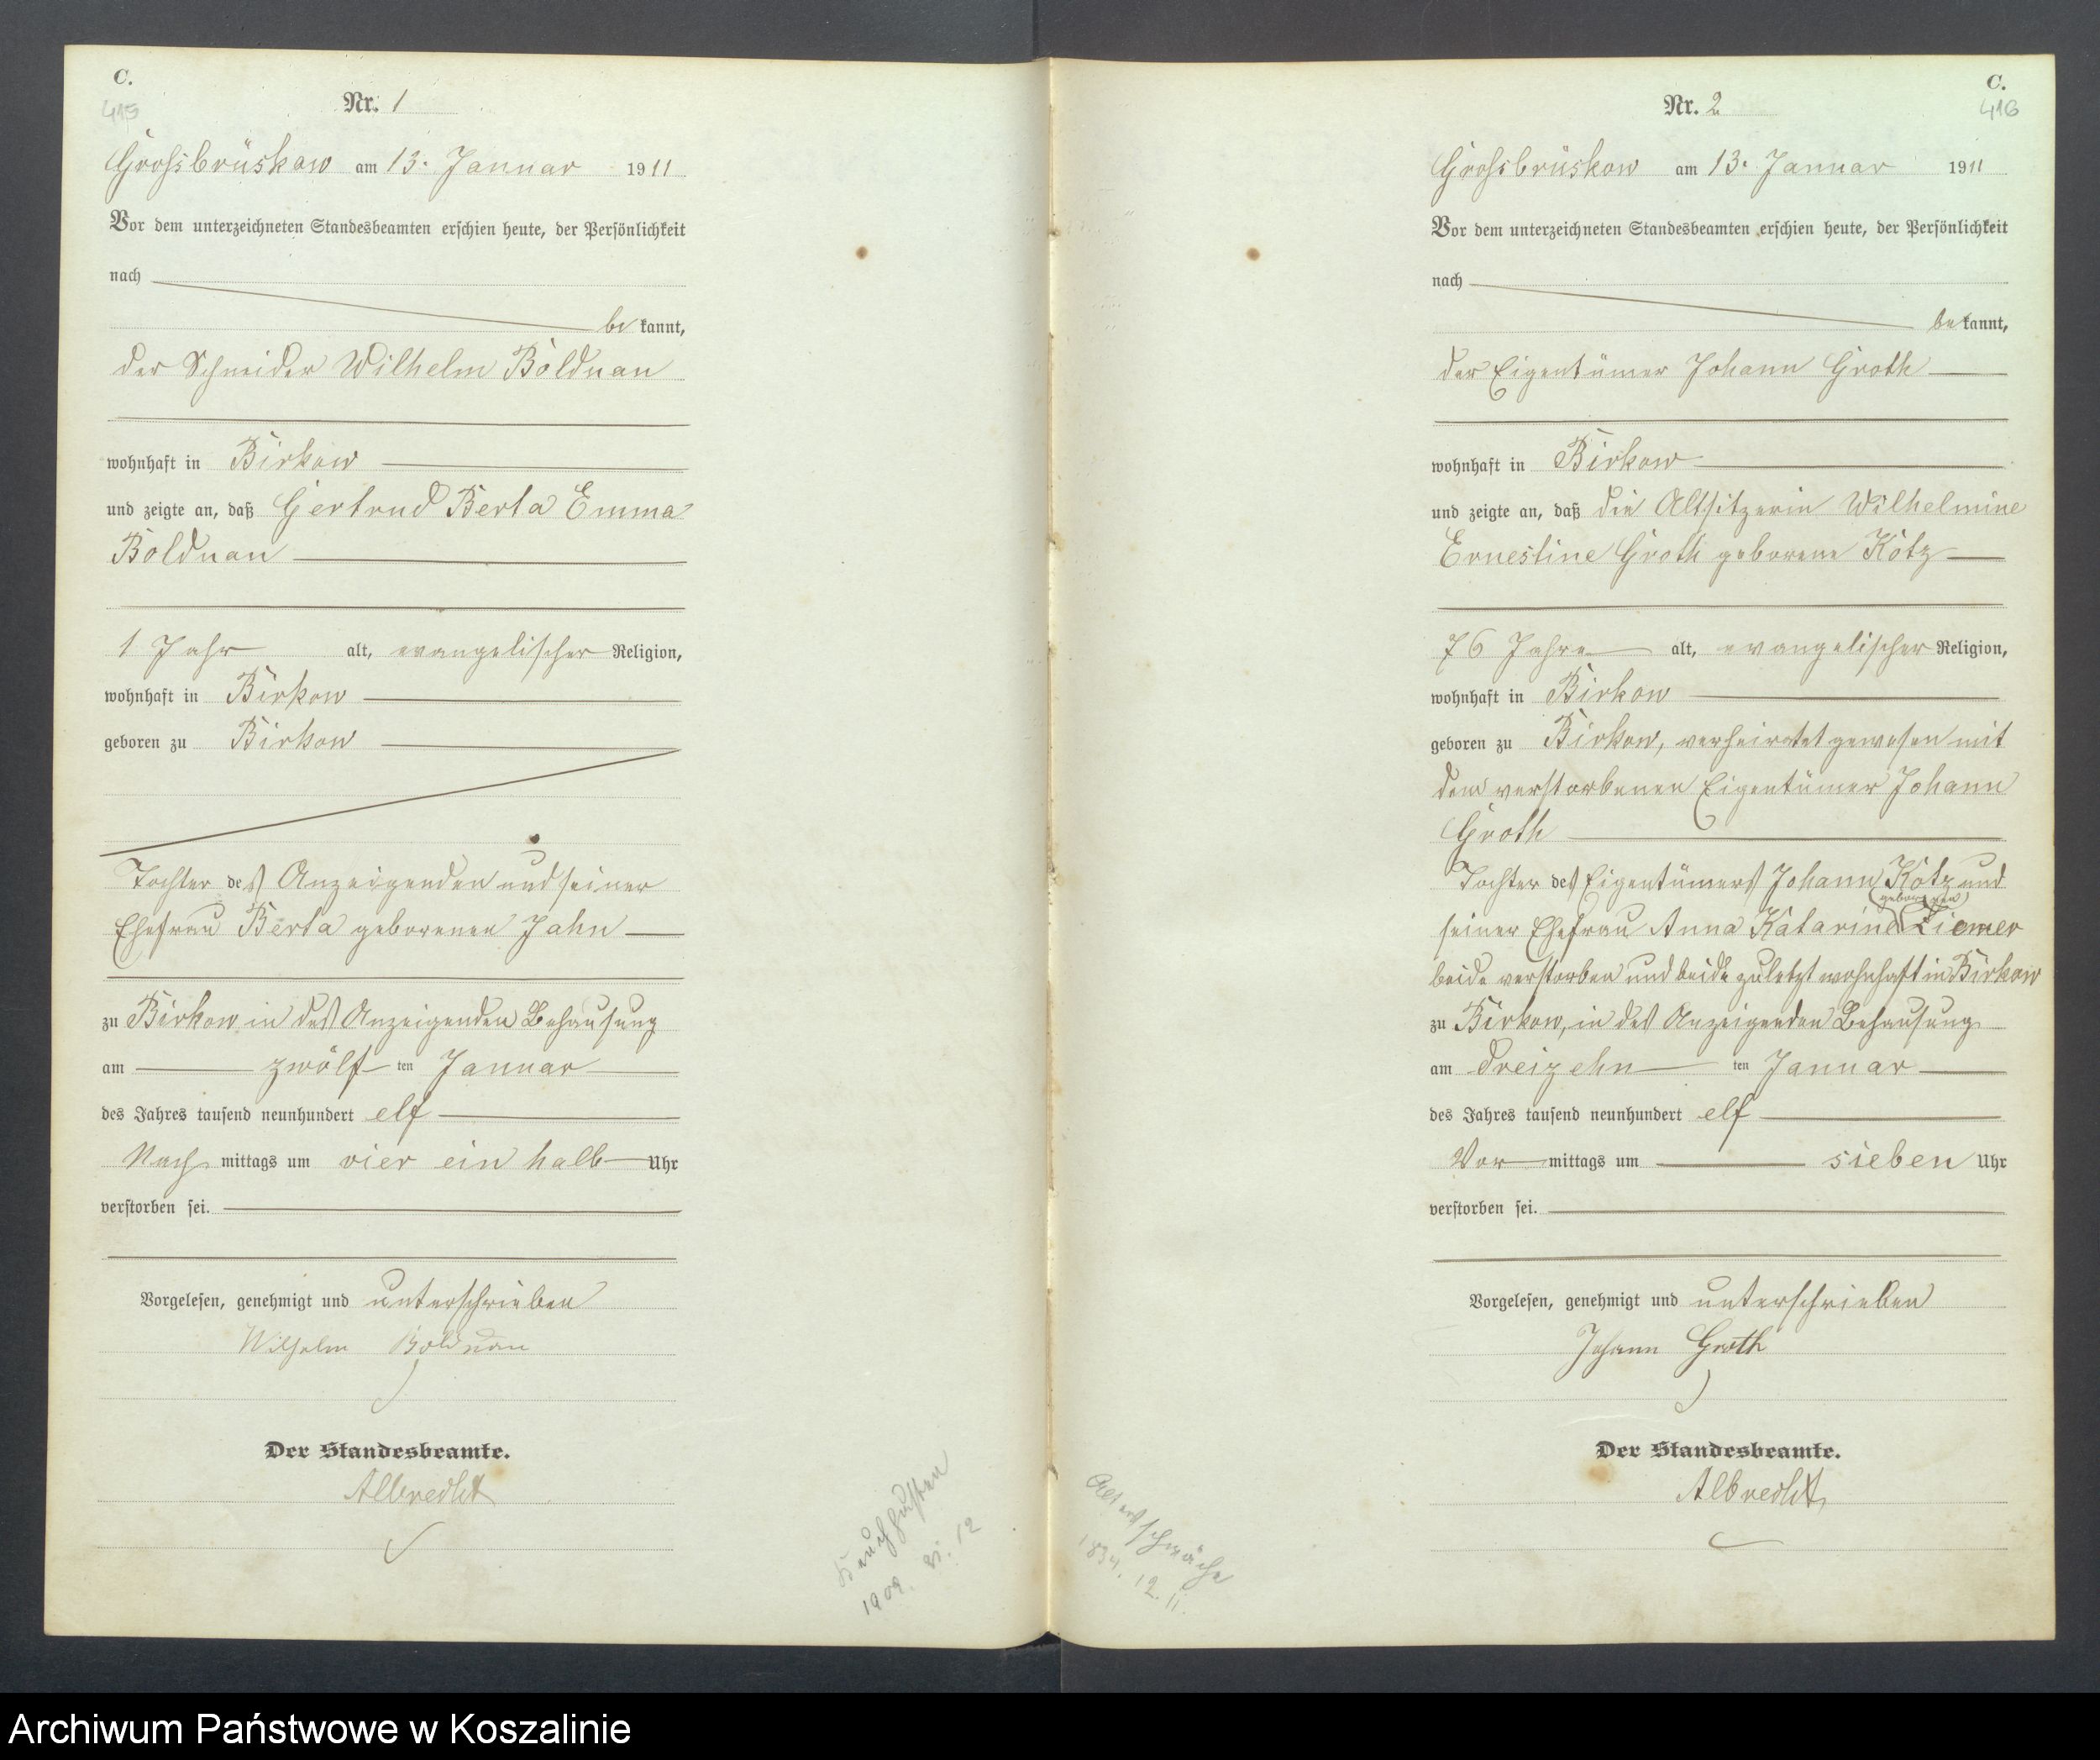 C.
415
Nr. 1
Grossbrüskow am 13. Januar 1911
Vor dem unterzeichneten Standesbeamten erschien heute, der Persönlichkeit
nach
be kannt,
der Schneider Wilhelm Bolduan
wohnhaft in Birkow
und zeigte an, daß Gertrud Berta Emma
Bolduan
1 Jahr alt, evangelischer Religion,
wohnhaft in Birkow
geboren zu Birkow
Tochter des Anzeigenden und seiner
Ehefrau Berta geborenen Jahn
zu Birkow, in des Anzeigenden Behausung
am zwölf ten Januar
des Jahres tausend neunhundert elf
Nach mittags um vier ein halb Uhr
verstorben sei.
Vorgelesen, genehmigt und unterschrieben
Wilhelm Bolduan
Der Standesbeamte.
Albrecht
1909. 12
C.
416
Nr. 2
Grossbrüskow am 13. Januar 1911
Vor dem unterzeichneten Standesbeamten erschien heute, der Persönlichkeit
nach
be kannt,
der Eigentümer Johann Groth
wohnhaft in Birkow
und zeigte an, daß die Altsitzerin Wilhelmine
Ernestine Groth geborene Kotz
76 Jahre alt, evangelischer Religion,
wohnhaft in Birkow
geboren zu Birkow, verheiratet gewesen mit
dem verstorbenen Eigentümer Johann
Groth
Tochter des Eigentümers Johann Kotz und
seiner Ehefrau Anna Katarine geborenen Ziemer
beide verstorben und beide zuletzt wohnhaft in Birkow
zu Birkow, in des Anzeigenden Behausung
am dreizehn ten Januar
des Jahres tausend neunhundert elf
Vor mittags um sieben Uhr
verstorben sei.
Vorgelesen, genehmigt und unterschrieben
Johann Groth
Der Standesbeamte.
Albrecht
Altersschwäche
1834. 12. 11.
Archiwum Państwowe w Koszalinie